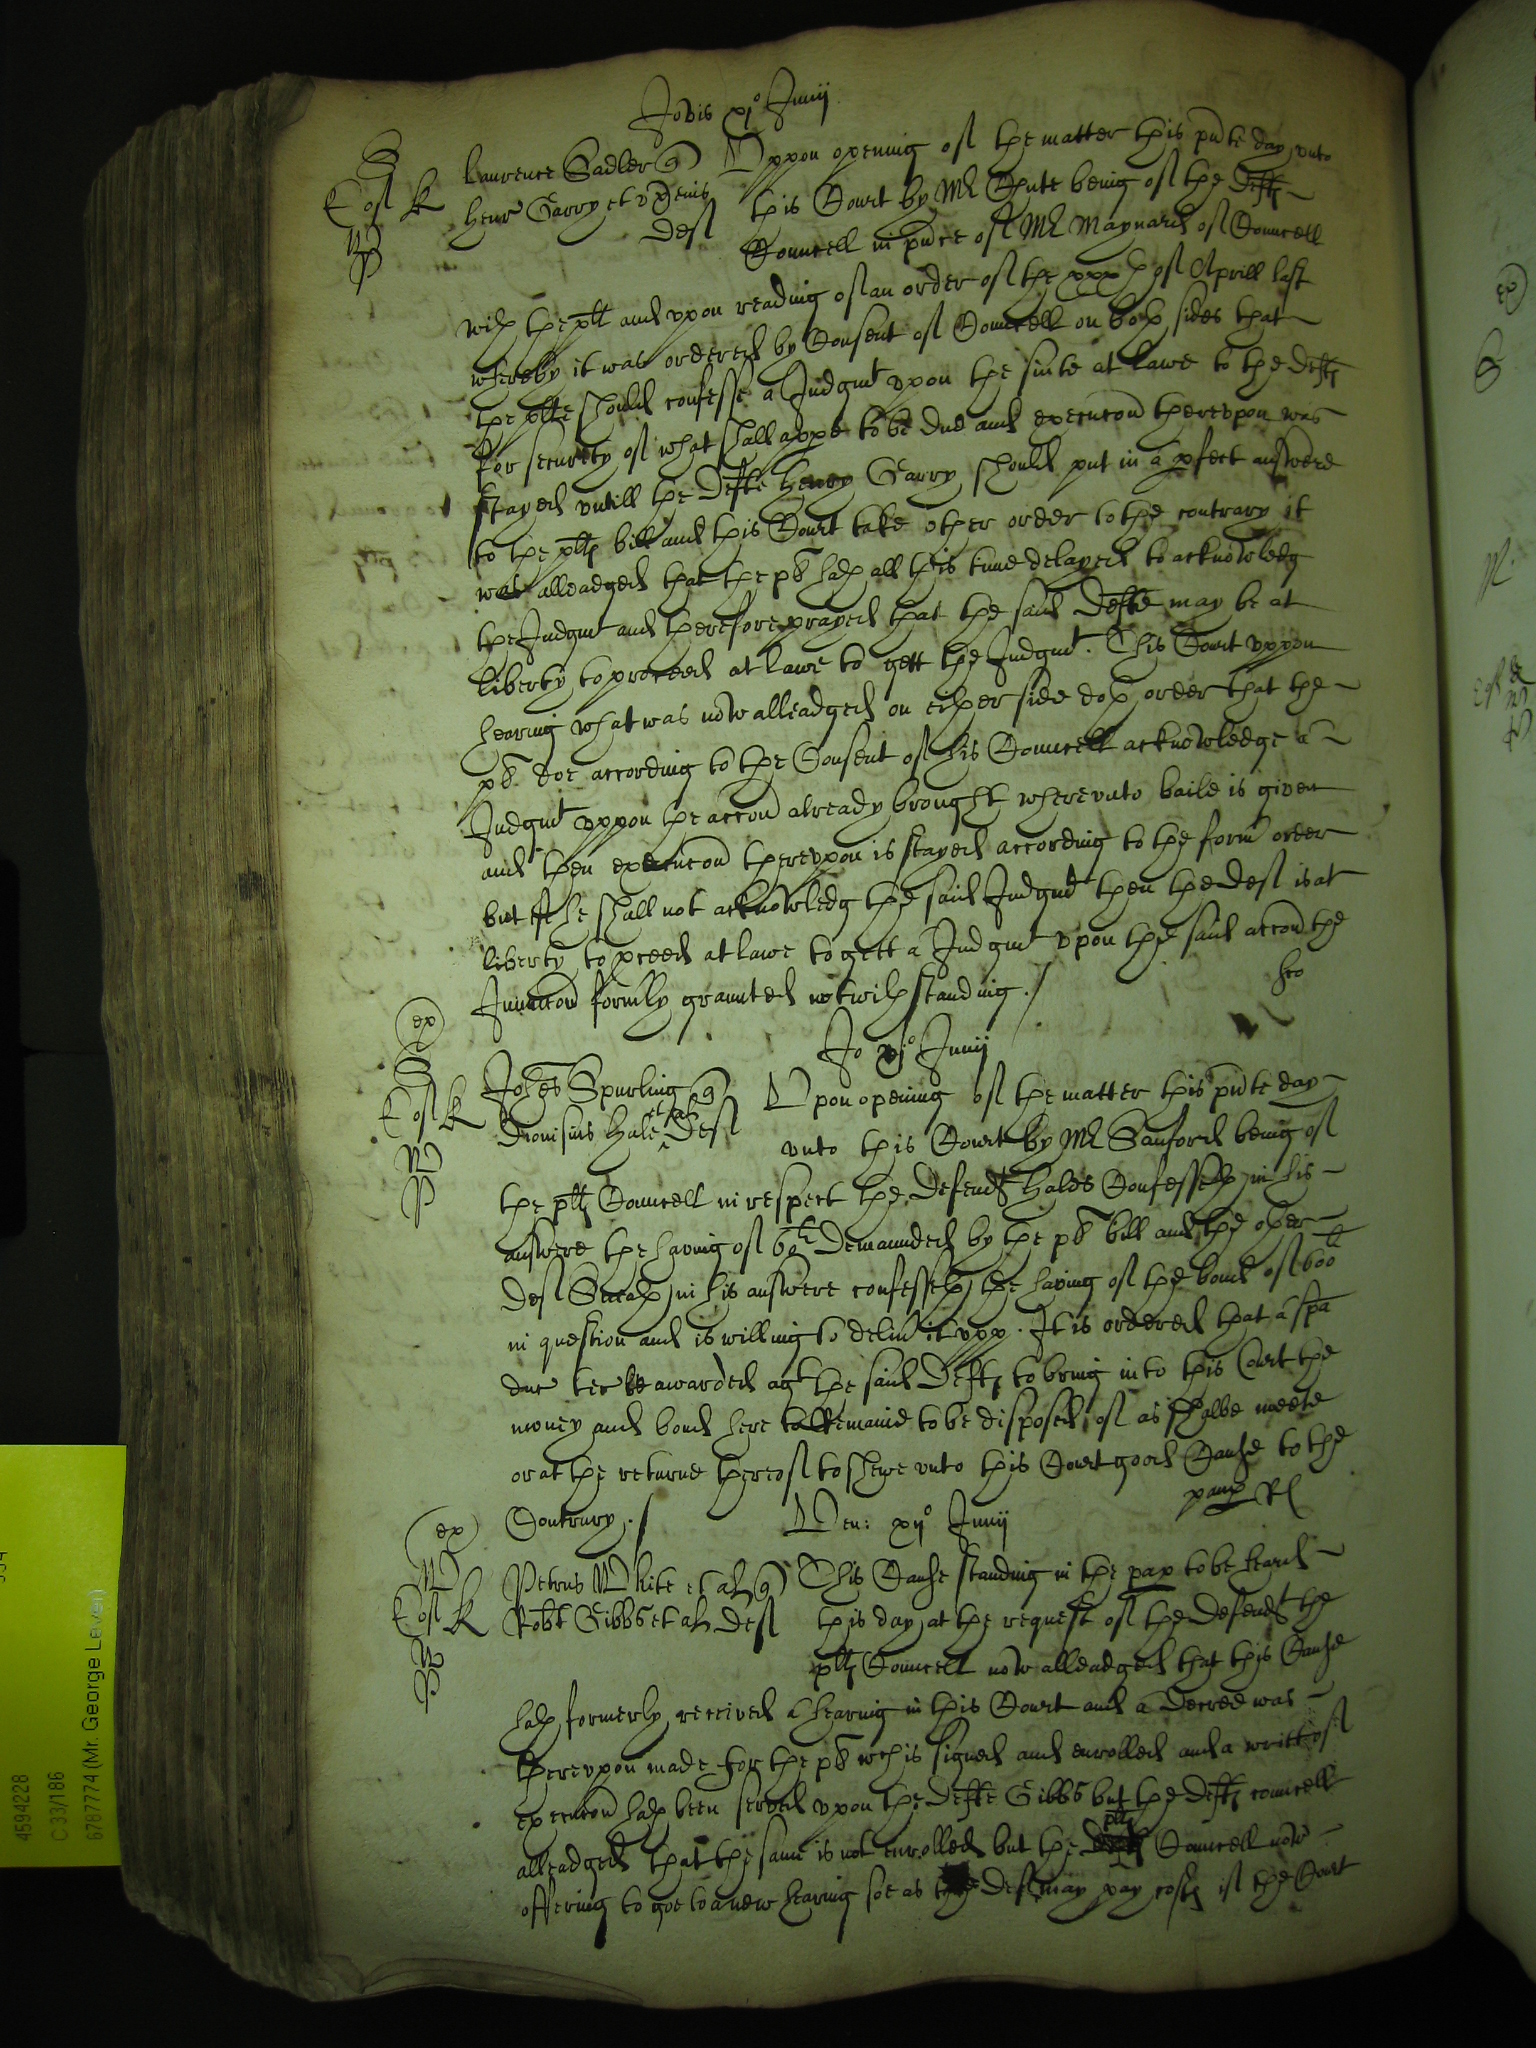 Jovis xjo Junij
Laurence Sadler q
Henr Garry et ux eius
def
Uppon opening of the matter this pnte day vnto
this Court by Mr Chute being of the defts
Councell in pnce of Mr Maynard of Councell
with the plt and vpon reading of an order of the xxxth of Aprill last
whereby it was ordered by Consent of Councell on both sides that
the plte should confesse a Judgmt vpon the suite at lawe to the defts
for security of what shall appe to be due and execucon therevpon was
stayed vntill the defte Henry Garry should put in a pfect answere
to the plts bill and this Court take other order to the contrary it
was alleadged that the pl hath all this time delayed to acknowledg
the Judgmt and therefore prayed that the said Defte may be at
liberty to proceed at lawe to gett the Judgmt. This Court vppon
hearing what was now alleadged on either side doth order that the
pl doe according to the Consent of his Councell acknowledge a
Judgmt vppon the accon already brought wherevnto baile is given
and then execucon therevpon is stayed according to the form order
but if he shall not acknowledg the said Judgmt then the def is at
liberty to pceed at lawe to gett a Judgmt vpon the said accon the
Juncon formly graunted notwithstanding ./
ex
Jo xjo Junij
Johes Spurling q
Dionisius Hale et al def
Upon opening of the matter this pnte day
vnto this Court by Mr Sanford being of
the plts Councell in respect the defendt Hales Confesseth in his
answere the having of 60li demaunded by the pl bill and the other
def in his answere confesseth the having of the bond of 600li
in question and is willing to deliu it vpp. It is ordered that a spa
duc tec be awarded agt the said Defts to bring into this Court the
money and bond here to remaine to be disposed of as shalbe meete
or at the returne thereof to shewe vnto this Court good Cause to the
Contrary ./
ex
Ven: xijo Junij
Petrus White et al q
Robt Gibbs et al def
This Cause standing in the pap to be heard
this day at the request of the defendt the
plts Councell now alleadged that this Cause
hath formerly received a hearing in this Court and a decree was
therevpon made for the pl wch is signed and enrolled and a writt of
execucon hath been served vpon the defte Gibbs but the defts councell
alleadged that the same is not enrolled but the plts Councell now
offering to goe to a new hearing soe as the def may pay costs if the Court
4594228
C 33/186
6787774 (Mr. George Leven)